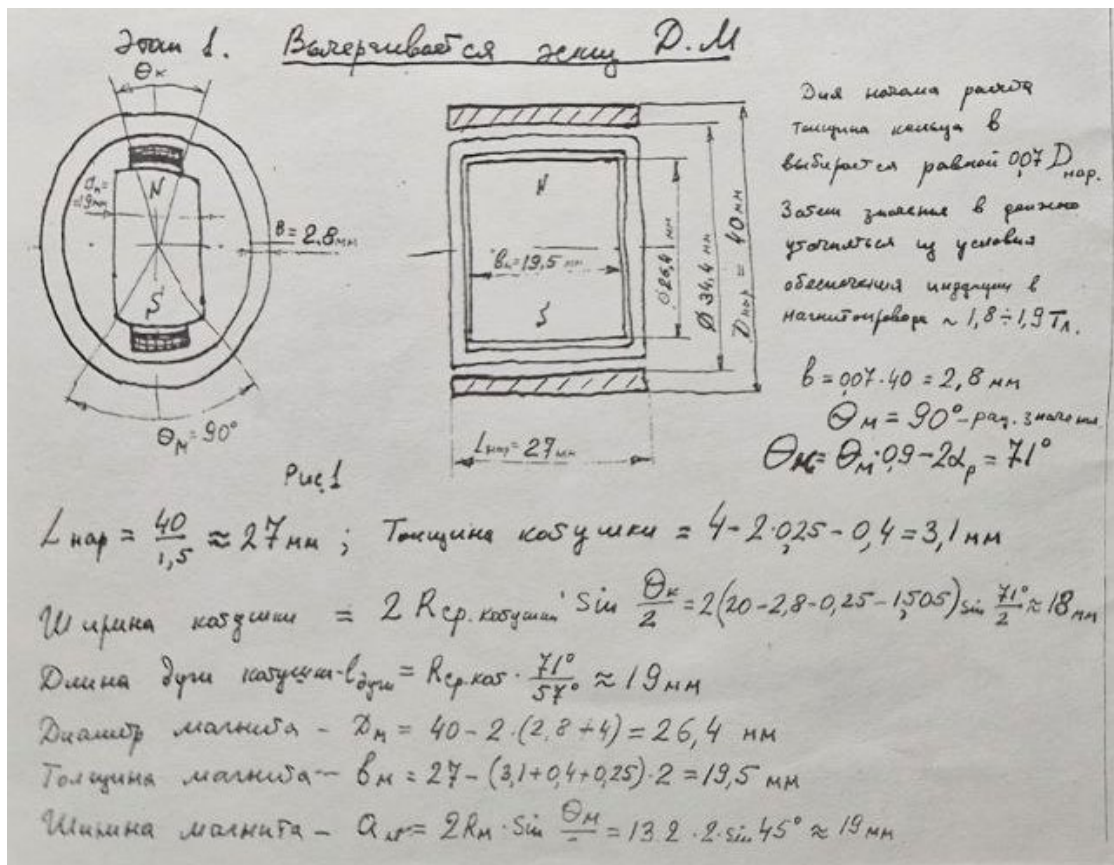 Этап 1. Вычерчивается эскиз Д.М
Θк
aм=
=19мм
N
S
в=2,8мм
Θм=90°
Рис.1
N
вм=19,5 мм
S
Ø26,4 мм
Ø34,4 мм
Dнар = 40мм
Lнар=27мм
Для начала расчёта
толщина кольца в
выбирается равной 0,07 Dнар.
Затем значения в должно
уточняться из условия
обеспечения индукции в
магнитопроводе ~ 1,8÷1,9 Тл.
в=0,07·40=2,8 мм
Θм=90°-рац. значение
Θк=Θм·0,9-2αр=71°
Lнар = 40/1,5 ≈ 27мм; Толщина катушки = 4-2·0,25-0,4=3,1мм
Ширина катушки = 2 Rср.катушки· Sin Θк/2 = 2(20-2,8-0,25-1,505) sin 71°/2 ≈ 18мм
Длина дуги катушки-lдуги = Rср.кат · 71°/57° ≈ 19мм
Диаметр магнита - Dм = 40-2·(2,8+4)=26,4 мм
Толщина магнита - вм = 27-(3,1+0,4+0,25)·2=19,5 мм
Ширина магнита - aм = 2Rм·Sin Θм/2 = 13.2·2·sin 45° ≈ 19мм